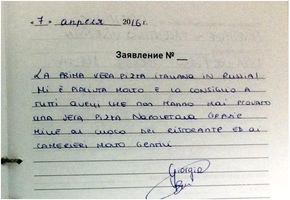 « 7 » апреля 2016 г.
Заявление № __
LA PRIMA VERA PIZZA ITALIANA IN RUSSIA!
MI È PIACIUTA MOLTO E LA CONSIGLIO A
TUTTI QUELLI CHE NON HANNO MAI PROVATO
UNA VERA PIZZA NAPOLETANA GRAZIE
MILLE AL CUOCO DEL RISTORANTE ED AI
CAMERIERI MOLTO GENTILI
Giorgio